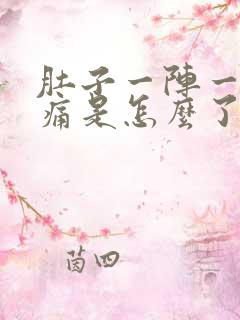 肚子一陣一
痛是怎麼了
茵四